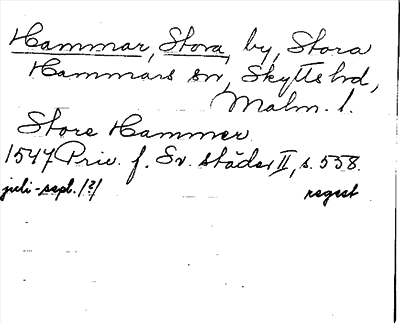 Hammar, Stora, by, Stora
Hammars sn, Skytts hd,
Malm. l.
Store Hammer
1547 Priv. f. Sv. städer II, s. 538.
juli-sept. (?) regest